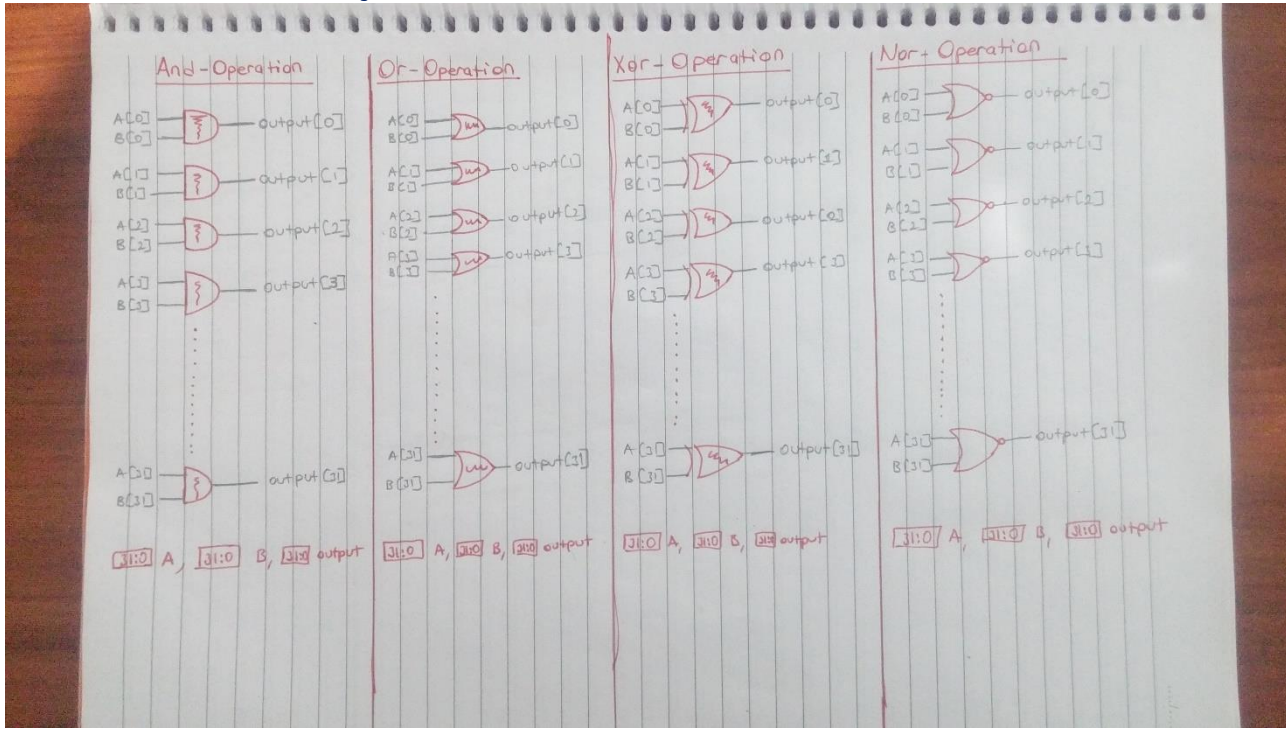 And-Operation
A[0]
B[0]
output[0]
A[1]
B[1]
output[1]
A[2]
B[2]
output[2]
A[3]
B[3]
output[3]
A[31]
B[31]
output[31]
[31:0] A, [31:0] B, [31:0] output
Or-Operation
A[0]
B[0]
output[0]
A[1]
B[1]
output[1]
A[2]
B[2]
output[2]
A[3]
B[3]
output[3]
A[31]
B[31]
output[31]
[31:0] A, [31:0] B, [31:0] output
Xor-Operation
A[0]
B[0]
output[0]
A[1]
B[1]
output[1]
A[2]
B[2]
output[2]
A[3]
B[3]
output[3]
A[31]
B[31]
output[31]
[31:0] A, [31:0] B, [31:0] output
Nor-Operation
A[0]
B[0]
output[0]
A[1]
B[1]
output[1]
A[2]
B[2]
output[2]
A[3]
B[3]
output[3]
A[31]
B[31]
output[31]
[31:0] A, [31:0] B, [31:0] output